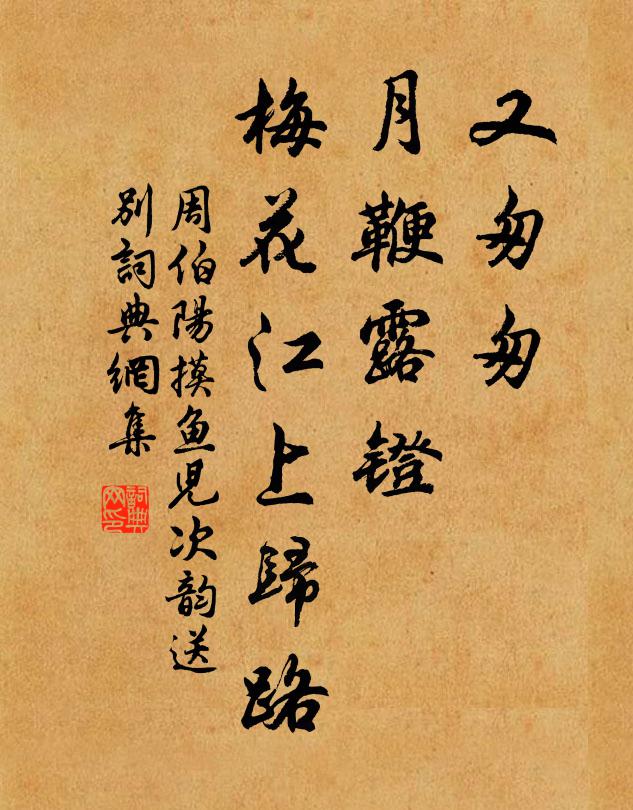 又匆匆
月鞭露鐙
梅花江上歸路
周伯陽摸魚兒次韵送
別詞典網集
詞典
网印